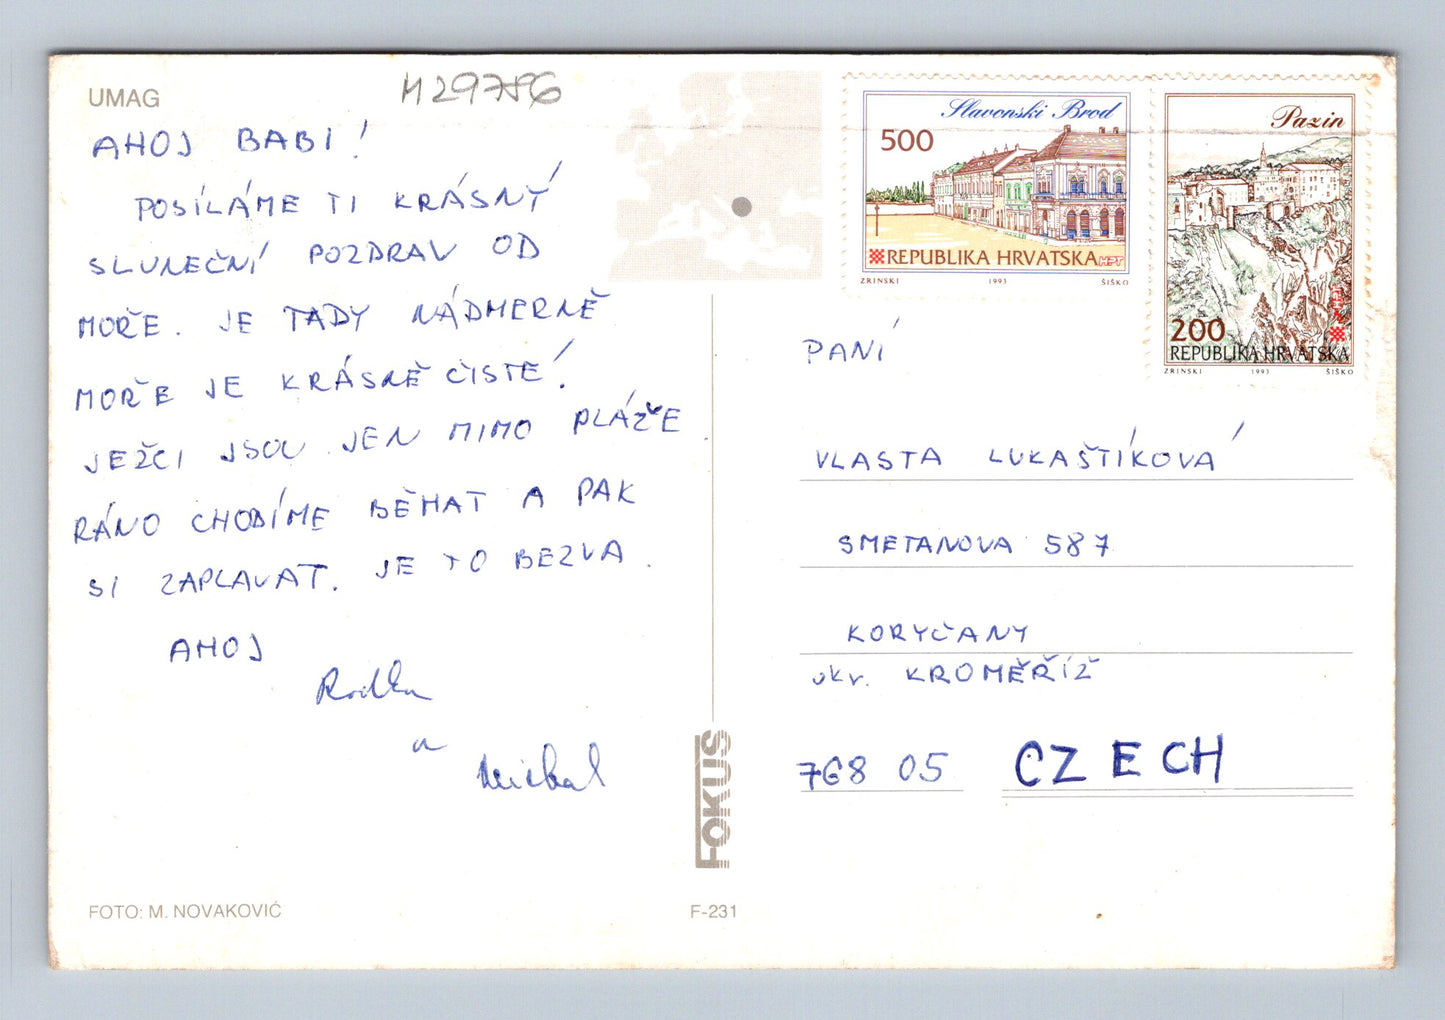 UMAG
M29786
AHOJ BABI!
POSÍLÁME TI KRÁSNÝ
SLUNEČNÍ POZDRAV OD
MOŘE. JE TADY NÁDMERNĚ
MOŘE JE KRÁSNĚ ČISTÉ!
JEŽCI JSOU JEN MIMO PLÁŽE
RÁNO CHODÍME BĚHAT A PAK
SI ZAPLAVAT. JE TO BEZVA.
AHOJ
Radka
a
Michal
FOTO: M. NOVAKOVIĆ
FOKUS
F-231
Slavonski Brod
500
REPUBLIKA HRVATSKA HPT
ZRINSKI 1993 ŠIŠKO
Pazin
200
HPT
REPUBLIKA HRVATSKA
ZRINSKI 1993 ŠIŠKO
PANÍ
VLASTA LUKAŠTÍKOVÁ
SMETANOVA 587
KORYČANY
okr. KROMĚŘÍŽ
768 05 CZECH